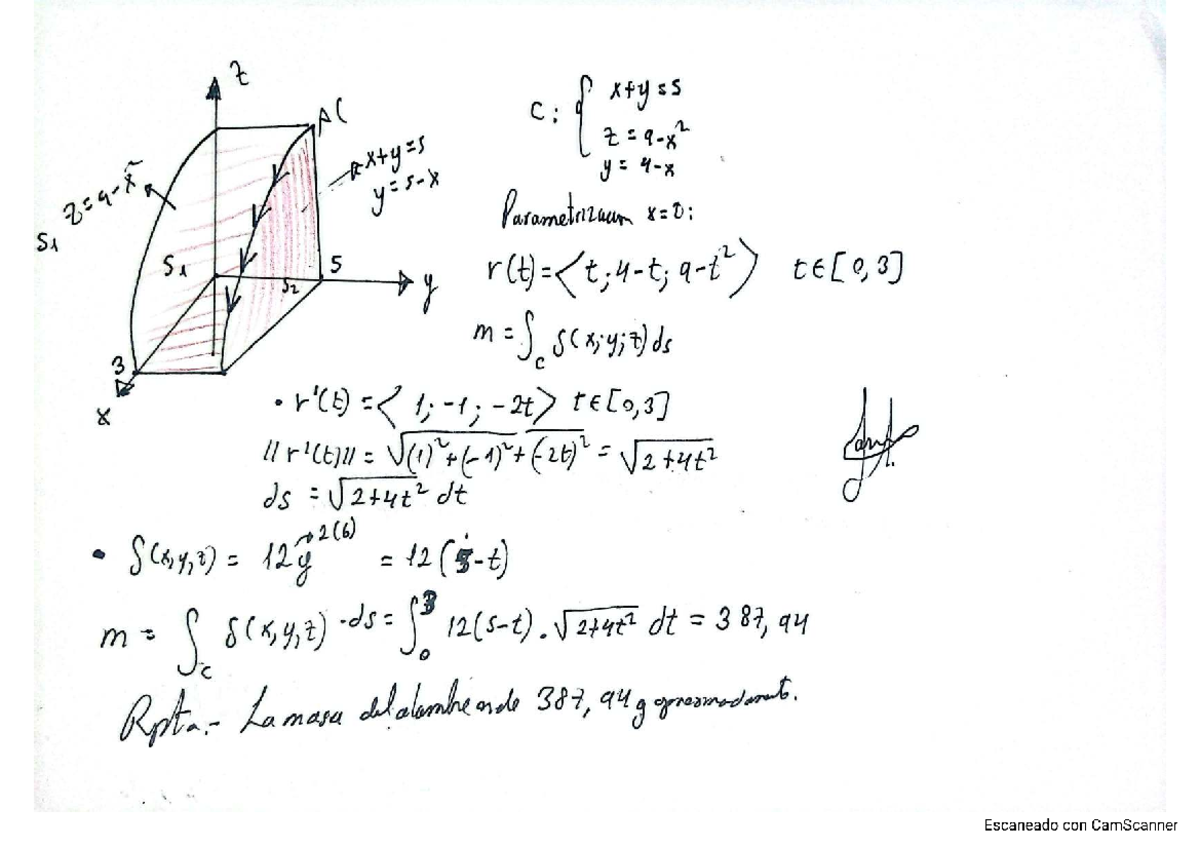 z
AC
x+y=5
y=5-x
z=9-x²
S1
S1
S2
5
y
3
x
C: { x+y=5
z=9-x²
y=4-x
x=0:
r(t)=⟨t; 4-t; 9-t²⟩ t∈[0,3]
m=∫c δ(x;y;z)ds
• r'(t)=⟨1; -1; -2t⟩ t∈[0,3]
||r'(t)||=√((1)²+(-1)²+(-2t)²)=√(2+4t²)
ds=√(2+4t²) dt
• δ(x,y,z)=12y →2(6) =12(5-t)
m=∫c δ(x,y,z)·ds=∫₀³ 12(5-t).√(2+4t²) dt=387,94
Rpta.- La masa del alambre es de 387,94 g aproximadamente.
Escaneado con CamScanner